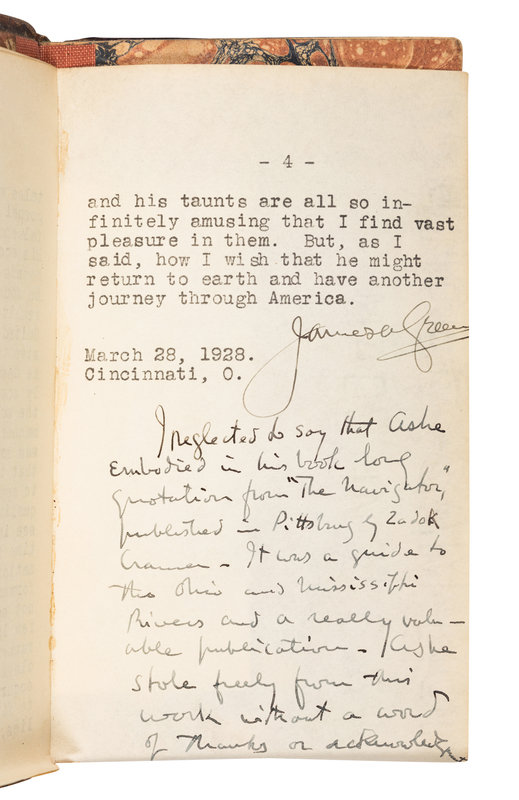 - 4 -
and his taunts are all so in-
finitely amusing that I find vast
pleasure in them. But, as I
said, how I wish that he might
return to earth and have another
journey through America.
James A Green
March 28, 1928.
Cincinnati, O.
I neglected to say that Ashe
embodied in his book long
quotation from "The Navigator,"
published in Pittsburg by Zadok
Cramer - It was a guide to
the Ohio and Mississippi
Rivers and a really valu-
able publication - Ashe
stole freely from this
work without a word
of thanks or